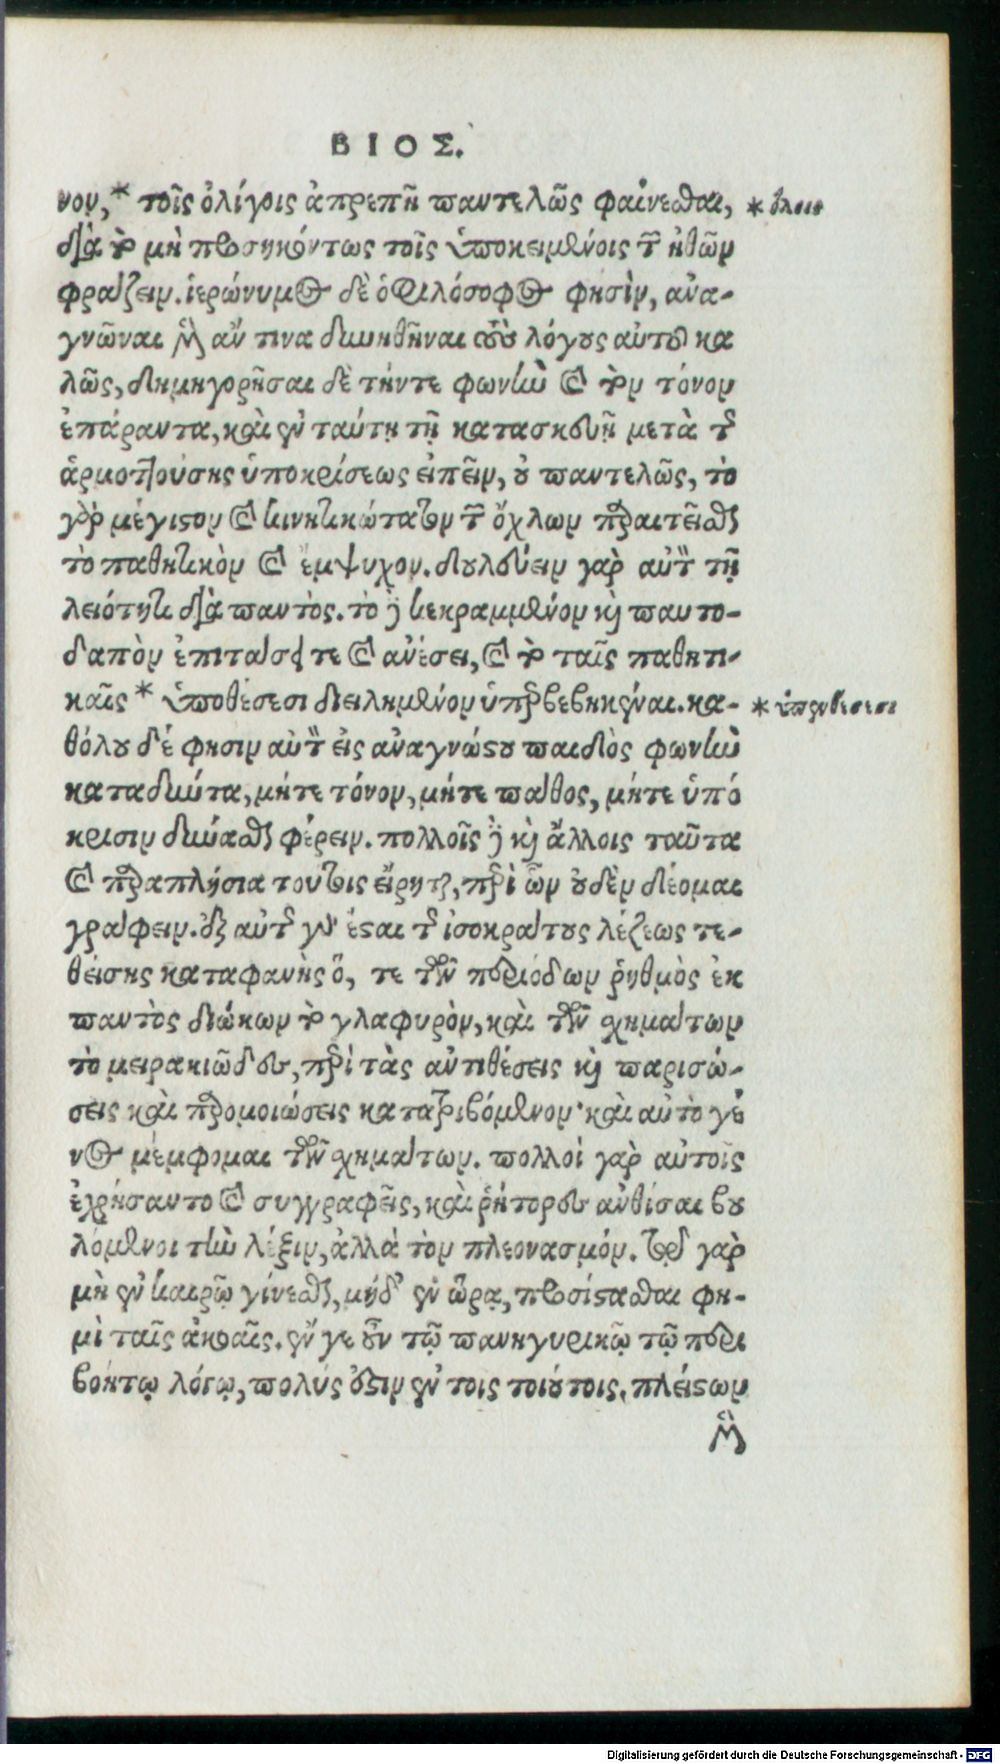 ΒΙΟΣ.
νον,* τοῖς ὀλίγοις ἀπρεπῆ παντελῶς φαίνεσθαι, * ὅλοις
διὰ τὸ μὴ προσηκόντως τοῖς ὑποκειμένοις τῶν ἠθῶν
φράζειν. ἱερώνυμος δὲ ὁ φιλόσοφος φησὶν, ἀνα-
γνῶναι μὲν ἄν τινα δυνηθῆναι τοὺς λόγους αὐτοῦ κα
λῶς, δημηγορῆσαι δὲ τήντε φωνὴν καὶ τὸν τόνον
ἐπάραντα, καὶ ἐν ταύτῃ τῇ κατασκευῇ μετὰ τῆς
ἁρμοττούσης ὑποκρίσεως εἰπεῖν, οὐ παντελῶς, τὸ
γὰρ μέγιστον καὶ κινητικώτατον τῶν ὄχλων παραιτεῖσθαι
τὸ παθητικὸν καὶ ἔμψυχον. δουλεύειν γὰρ αὐτὸν τῇ
λειότητι διὰ παντός. τὸ δὲ κεκραμμένον καὶ παντο-
δαπὸν ἐπιτάσει τε καὶ ἀνέσει, καὶ τὸ ταῖς παθητι-
καῖς * ὑποθέσεσι διειλημμένον ὑπερβεβηκέναι. κα- * ὑπερθέσεσι
θόλου δέ φησιν αὐτὸν εἰς ἀναγνώστου παιδὸς φωνὴν
καταδύντα, μήτε τόνον, μήτε πάθος, μήτε ὑπό
κρισιν δύνασθαι φέρειν. πολλοῖς δὲ καὶ ἄλλοις ταῦτα
καὶ παραπλήσια τούτοις εἴρηται, περὶ ὧν οὐδὲν δέομαι
γράφειν. ἐξ αὐτῆς γὰρ ἔσται τῆς ἰσοκράτους λέξεως τε-
θείσης καταφανὴς ὅ, τε τῶν περιόδων ῥυθμὸς ἐκ
παντὸς διώκων τὸ γλαφυρὸν, καὶ τῶν σχημάτων
τὸ μειρακιῶδες, περὶ τὰς ἀντιθέσεις καὶ παρισώ-
σεις καὶ παρομοιώσεις κατατριβόμενον· καὶ αὐτὸ γέ
νος μέμφομαι τῶν σχημάτων. πολλοὶ γὰρ αὐτοῖς
ἐχρήσαντο καὶ συγγραφεῖς, καὶ ῥήτορες ἀνθίσαι βου
λόμενοι τὴν λέξιν, ἀλλὰ τὸν πλεονασμόν. τῷ γὰρ
μὴ ἐν καιρῷ γίνεσθαι, μηδ' ἐν ὥρᾳ, προσίστασθαι φη-
μὶ ταῖς ἀκοαῖς. ἐν γε οὖν τῷ πανηγυρικῷ τῷ περι
βοήτῳ λόγῳ, πολύς ἐστιν ἐν τοις τοιούτοις. πλείστων
μὲν